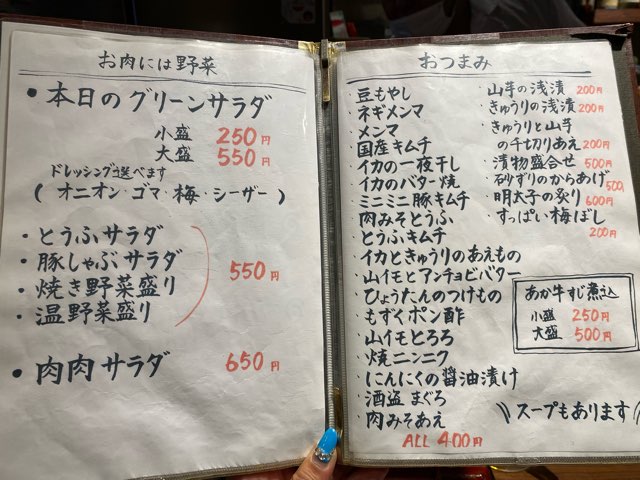 お肉には野菜
・本日のグリーンサラダ
小盛 250円
大盛 550円
ドレッシングは選べます
(オニオン・ゴマ・梅・シーザー)
・とうふサラダ
・豚しゃぶサラダ
・焼き野菜盛り
・温野菜盛り
550円
・肉肉サラダ 650円
おつまみ
・豆もやし
・ネギメンマ
・メンマ
・国産キムチ
・イカの一夜干し
・イカのバター焼
・ミニミニ豚キムチ
・肉みそとうふ
・とうふキムチ
・イカときゅうりのあえもの
・山イモとアンチョビバター
・ひょうたんのつけもの
・もずくポン酢
・山イモとろろ
・焼ニンニク
・にんにくの醤油漬け
・酒盗 まぐろ
・肉みそあえ
ALL 400円
・山芋の浅漬 200円
・きゅうりの浅漬 200円
・きゅうりと山芋
の千切りあえ 200円
・漬物盛合せ 500円
・砂ずりのからあげ 500円
・明太子の炙り 600円
・すっぱい梅ぼし
200円
あか牛すじ煮込
小盛 250円
大盛 500円
\\スープもあります//